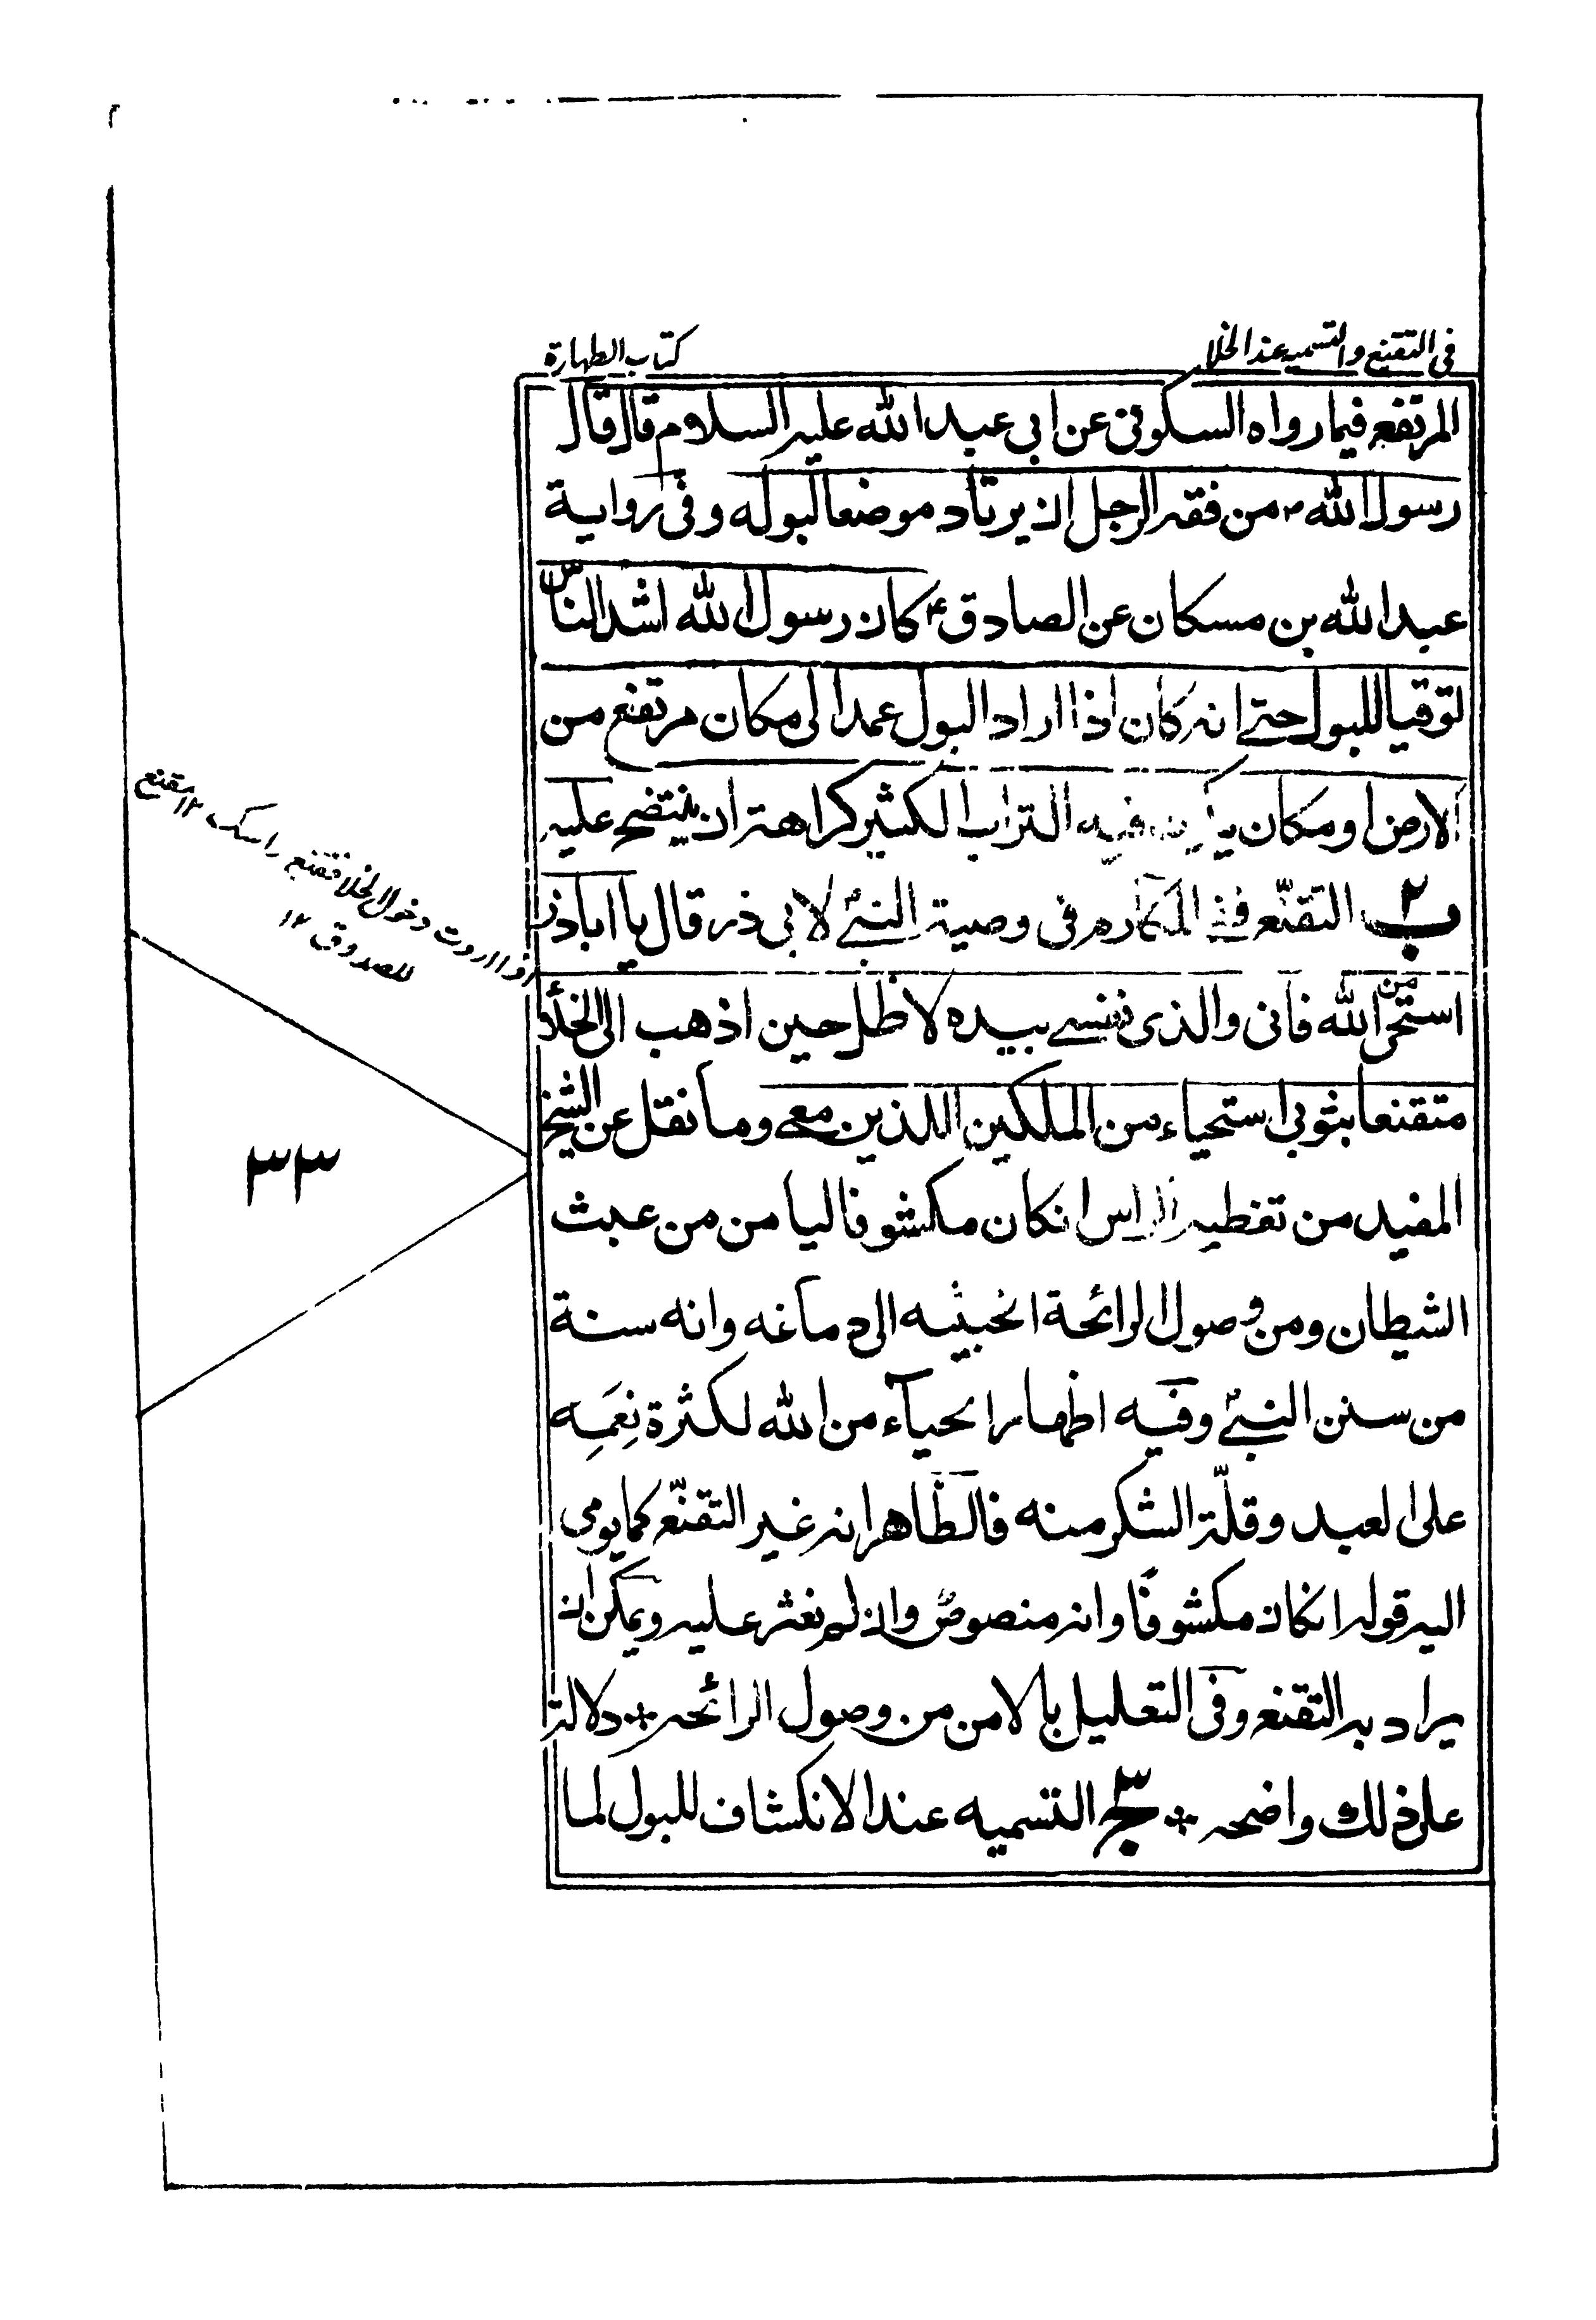 في التقنع والتسميه عند الخلا
كتاب الطهارة
المرتفعه فيما رواه السكوني عن ابي عبد الله عليه السلام قال قال
رسول الله ص من فقه الرجل ان يرتاد موضعا لبوله وفي رواية
عبد الله بن مسكان عن الصادق ع كان رسول الله اشد الناس
توقيا للبول حتى انه كان اذا اراد البول عمد الى مكان مرتفع من
الارض او مكان يكون فيه التراب الكثير كراهة ان ينتضح عليه
ب ٢ التقنّع ففي المكارم في وصية النبيّ لابي ذر قال يا اباذر
استحي من الله فاني والذي نفسي بيده لاظل حين اذهب الى الخلأ
متقنعا بثوبي استحياء من الملكين اللذين معي وما نقل عن الشيخ
المفيد من تغطية الراس انكان مكشوفا ليامن من عبث
الشيطان ومن وصول الرائحة الخبيثه الى دماغه وانه سنة
من سنن النبيّ وفيه اظهار الحياء من الله لكثرة نِعَمِه
على العبد وقلّة الشكر منه فالظاهر انه غير التقنّع كما يومي
اليه قوله انكان مكشوفًا وانه منصوصٌ وان لم نعثر عليه ويمكن ان
يراد به التقنع وفي التعليل بالامن من وصول الرائحه دلالة
على ذلك واضحه ج ٣ التسميه عند الانكشاف للبول لما
اذا اردت دخول الخلا فقنع راسك ١٢ مقنع
للصدوق ١٢
٣٣